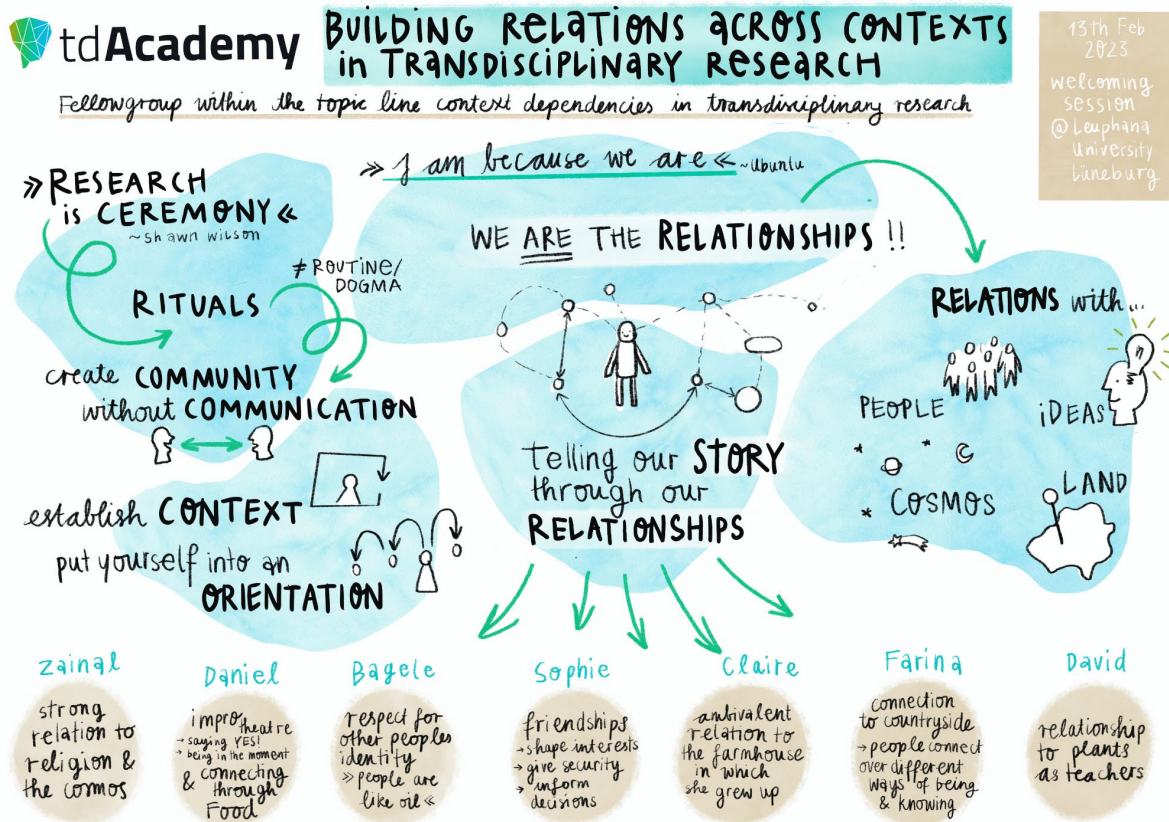 tdAcademy
BUILDING RELATIONS ACROSS CONTEXTS
in TRANSDISCIPLINARY RESEARCH
Fellowgroup within the topic line context dependencies in transdisciplinary research
13th Feb
2023
welcoming
session
@ Leuphana
University
Lüneburg
» RESEARCH
is CEREMONY «
~ Shawn Wilson
RITUALS
≠ ROUTINE/
DOGMA
create COMMUNITY
without COMMUNICATION
establish CONTEXT
put yourself into an
ORIENTATION
» I am because we are « ~ Ubuntu
WE ARE THE RELATIONSHIPS !!
Telling our STORY
through our
RELATIONSHIPS
RELATIONS with...
PEOPLE
iDEAS
COSMOS
LAND
Zainal
strong
relation to
religion &
the cosmos
Daniel
impro theatre
→ saying YES!
→ being in the moment
& connecting
through
Food
Bagele
respect for
other peoples
identity
» people are
like oil «
Sophie
friendships
→ shape interests
→ give security
→ inform
decisions
Claire
ambivalent
relation to
the farmhouse
in which
she grew up
Farina
connection
to countryside
→ people connect
over different
ways of being
& knowing
David
relationship
to plants
as teachers